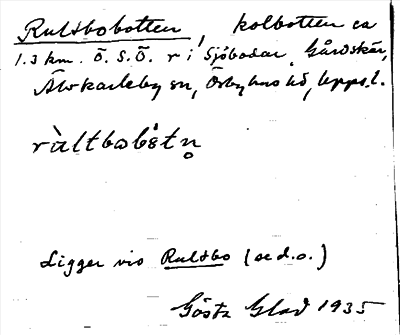 Rultbobotten, kolbotten ca
1.3 km. Ö. S. Ö. r i Sjöbodar, Gårdskär,
Älvkarleby sn, Örbyhus hd, Upps. l.
ràltbobòtn̥
Ligger vid Rultbo (se d. o.)
Gösta Glad 1935